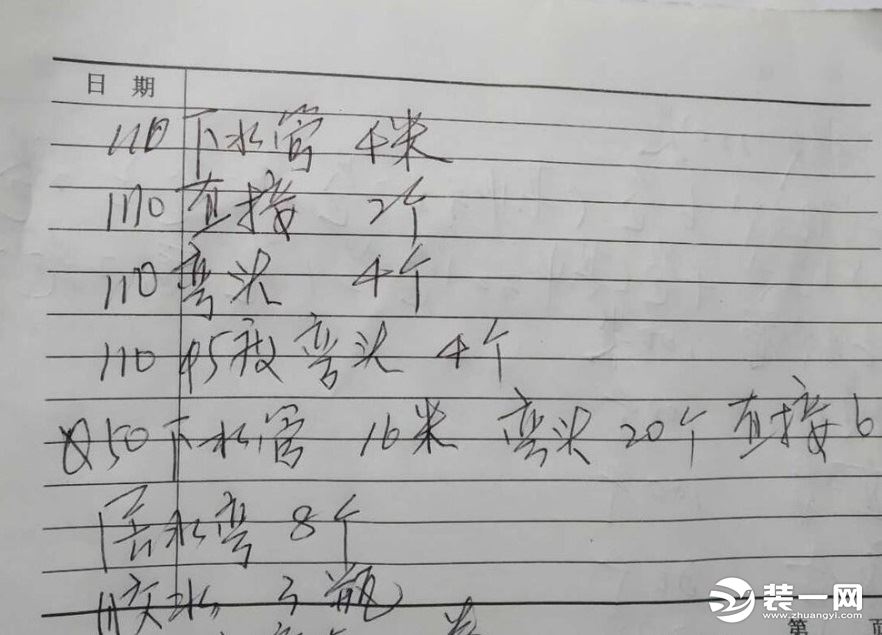 日 期
110 下水管 4米
110 直接 2个
110 弯头 4个
110 45度弯头 4个
50下水管 16米 弯头20个 直接6
存水弯 8个
胶水 3瓶
装一网
www.zhuangyi.com
第 页